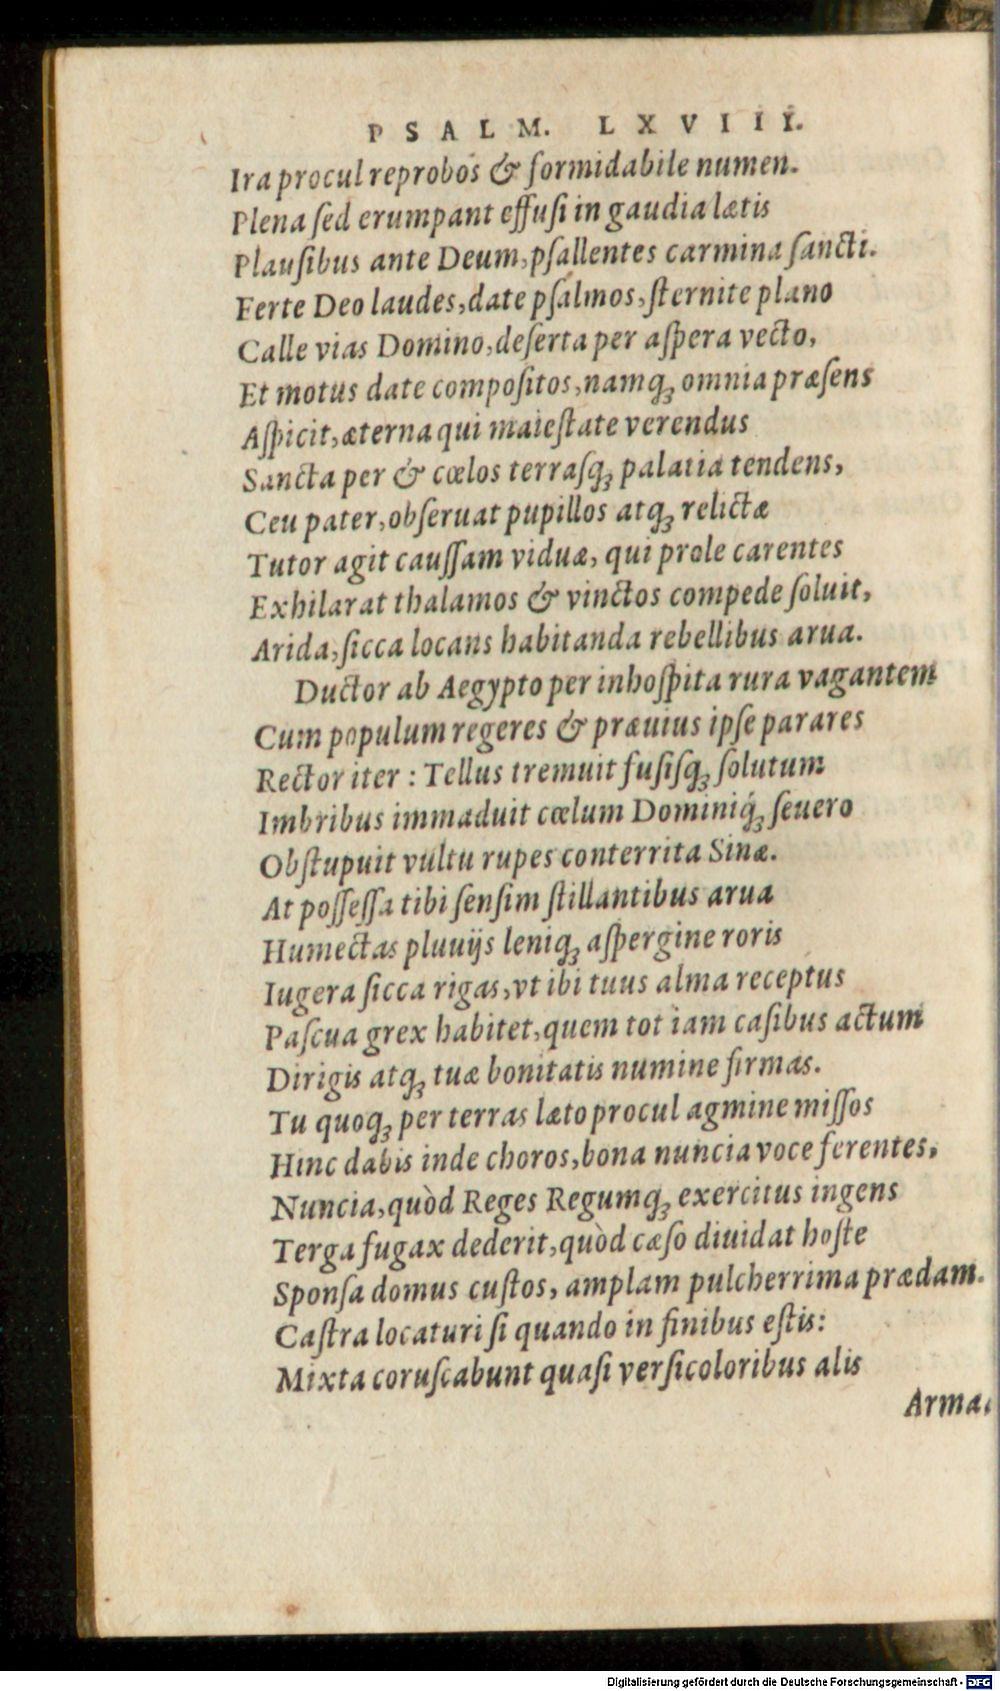 PSALM. LXVIII.
Ira procul reprobos & formidabile numen.
Plena ſed erumpant effuſi in gaudia lætis
Plauſibus ante Deum, pſallentes carmina ſancti.
Ferte Deo laudes, date pſalmos, ſternite plano
Calle vias Domino, deſerta per aſpera vecto,
Et motus date compoſitos, namqꝫ omnia præſens
Aſpicit, æterna qui maieſtate verendus
Sancta per & cœlos terraſqꝫ palatia tendens,
Ceu pater, obſeruat pupillos atqꝫ relictæ
Tutor agit cauſſam viduæ, qui prole carentes
Exhilarat thalamos & vinctos compede ſoluit,
Arida, ſicca locans habitanda rebellibus arua.
Ductor ab Aegypto per inhoſpita rura vagantem
Cum populum regeres & præuius ipſe parares
Rector iter : Tellus tremuit fuſiſqꝫ ſolutum
Imbribus immaduit cœlum Dominiq́ꝫ ſeuero
Obſtupuit vultu rupes conterrita Sinæ.
At poſſeſſa tibi ſenſim ſtillantibus arua
Humectas pluuijs leniqꝫ aſpergine roris
Iugera ſicca rigas, vt ibi tuus alma receptus
Paſcua grex habitet, quem tot iam caſibus actum
Dirigis atqꝫ tuæ bonitatis numine firmas.
Tu quoqꝫ per terras læto procul agmine miſſos
Hinc dabis inde choros, bona nuncia voce ferentes,
Nuncia, quòd Reges Regumqꝫ exercitus ingens
Terga fugax dederit, quòd cæſo diuidat hoſte
Sponſa domus cuſtos, amplam pulcherrima prædam.
Caſtra locaturi ſi quando in finibus eſtis:
Mixta coruſcabunt quaſi verſicoloribus alis
Arma.
Digitalisierung gefördert durch die Deutsche Forschungsgemeinschaft - DFG